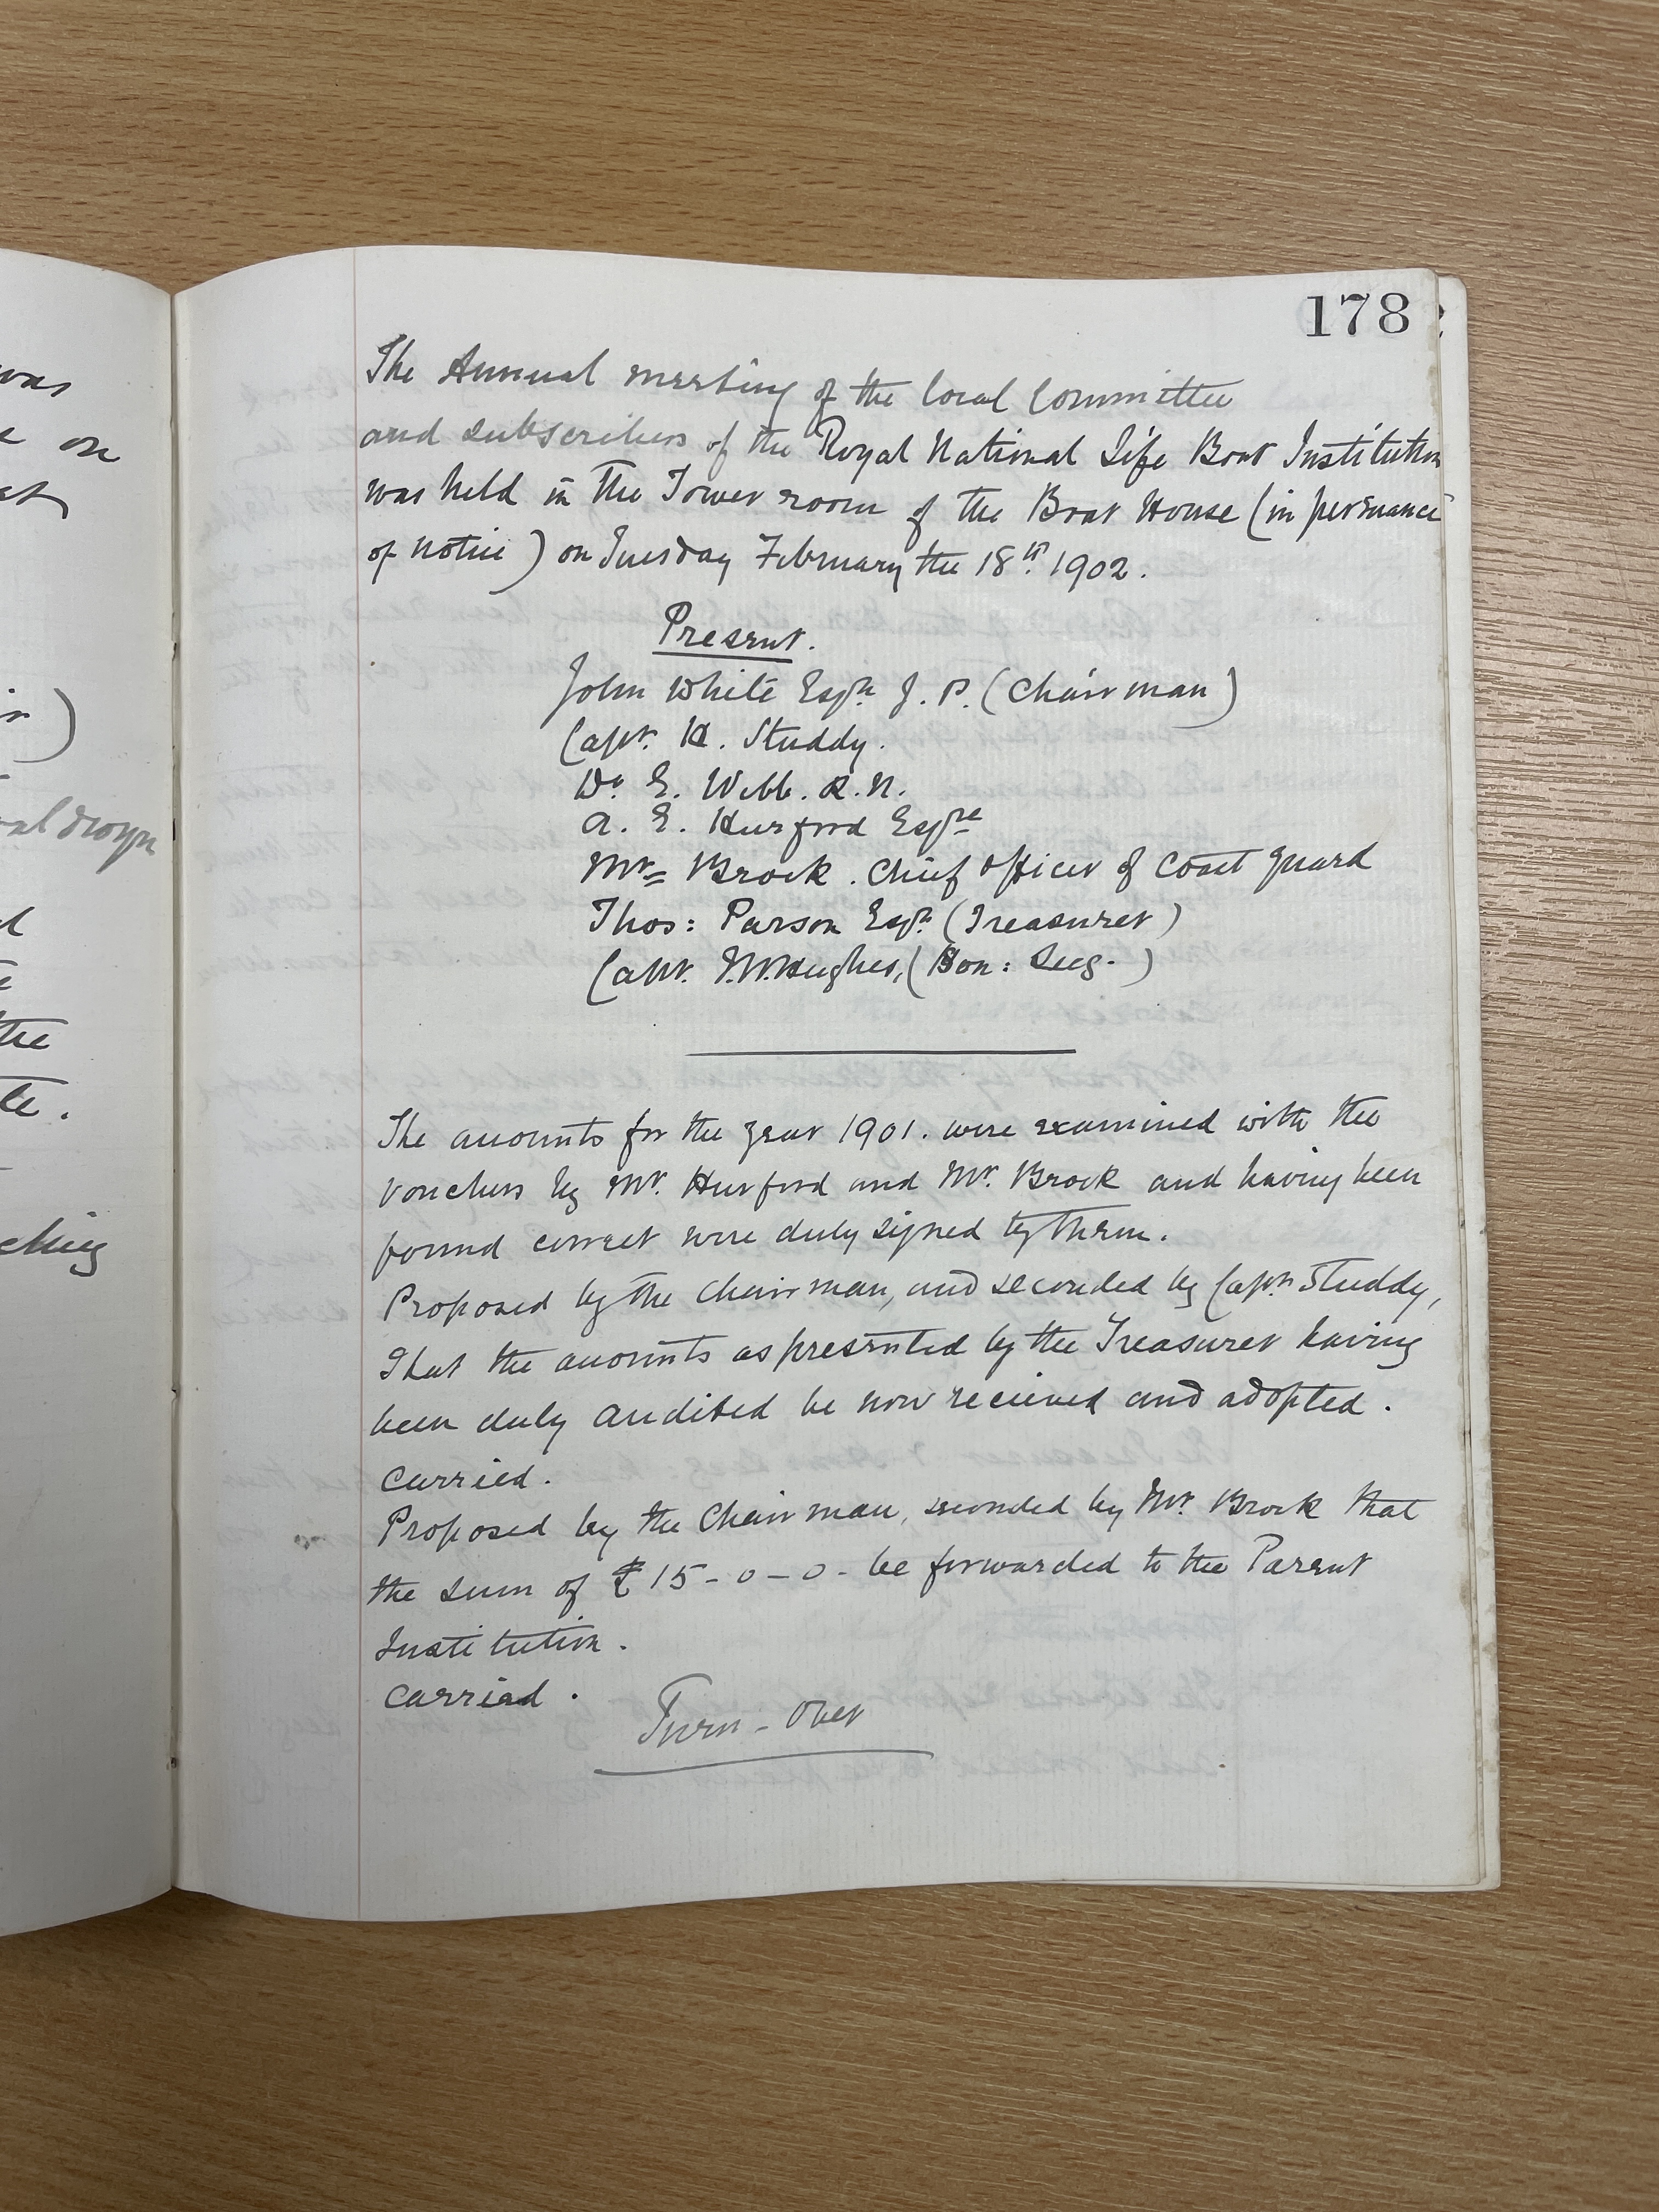 178
The Annual meeting of the local Committee
and subscribers of the Royal National Life Boat Institution
was held in the Tower room of the Boat House (in persuance
of notice) on Tuesday February the 18th 1902.
Present.
John White Esqre J. P. (Chairman)
Capt. H. Studdy.
Dr. E. Webb. R.N.
A. E. Hurford Esqre
Mr Brock. Chief Officer of Coast guard
Thos: Parson Esqr. (Treasurer)
Capt. Hughes, (Hon: Secy.)
The accounts for the year 1901. were examined with the
vouchers by Mr. Hurford and Mr. Brock and having been
found correct were duly signed by them.
Proposed by the Chairman, and seconded by Capt. Studdy,
That the accounts as presented by the Treasurer having
been duly audited be now recieved and adopted.
Carried.
Proposed by the Chairman, seconded by Mr. Brock that
the sum of £15-0-0- be forwarded to the Parent
Institution.
Carried.
Turn-Over
was
on
the
te.